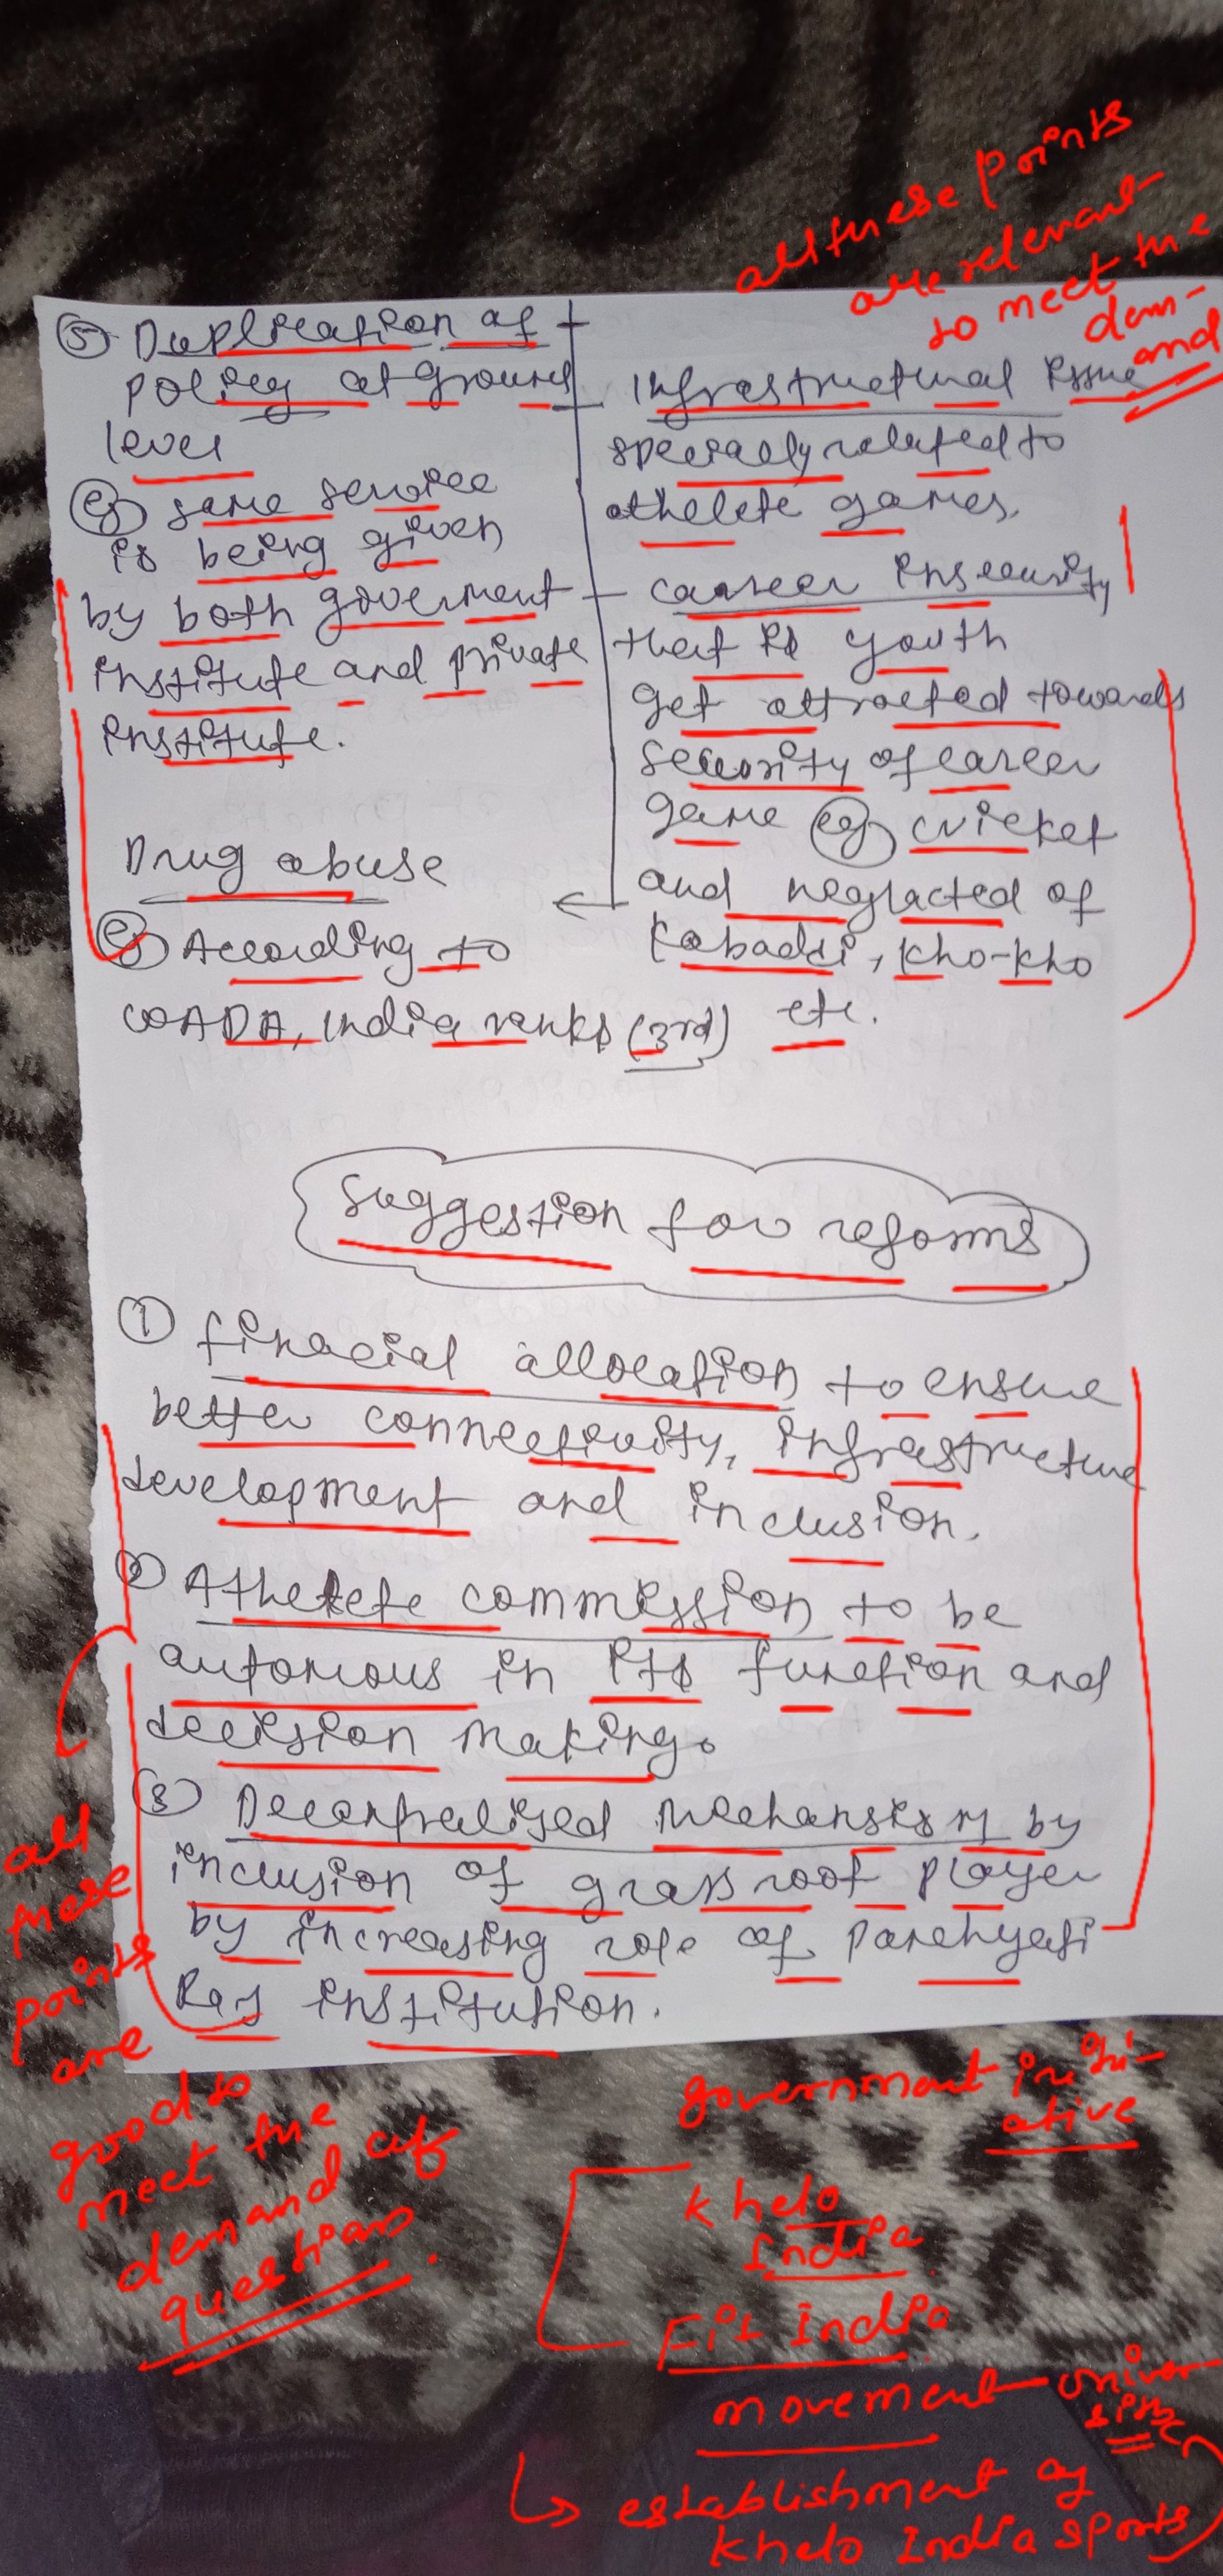 all these points
are relevant
to meet the
dem-
and
⑤ Duplication of
policy at ground
level
eg same service
is being given
by both goverment
institute and private
institute.
Drug abuse
eg According to
WADA, India ranks (3rd)
Infrastructural issue
specially related to
athelete games.
career insecurity
that is youth
get attracted towards
security of career
game eg cricket
and neglacted of
kabaddi, kho-kho
etc.
Suggestion for reforms
① finacial allocation to ensure
better connectivity, infrastructure
development and inclusion.
② Athelete commission to be
automous in its function and
decision making.
③ Decentralised mechansism by
inclusion of grassroot player
by increasing role of panchyati
Raj institution.
all
these
points
are
good to
meet the
demand of
question.
government initi-
ative
khelo
India
Fit India
movement
establishment of
khelo India sports
univer-
sity